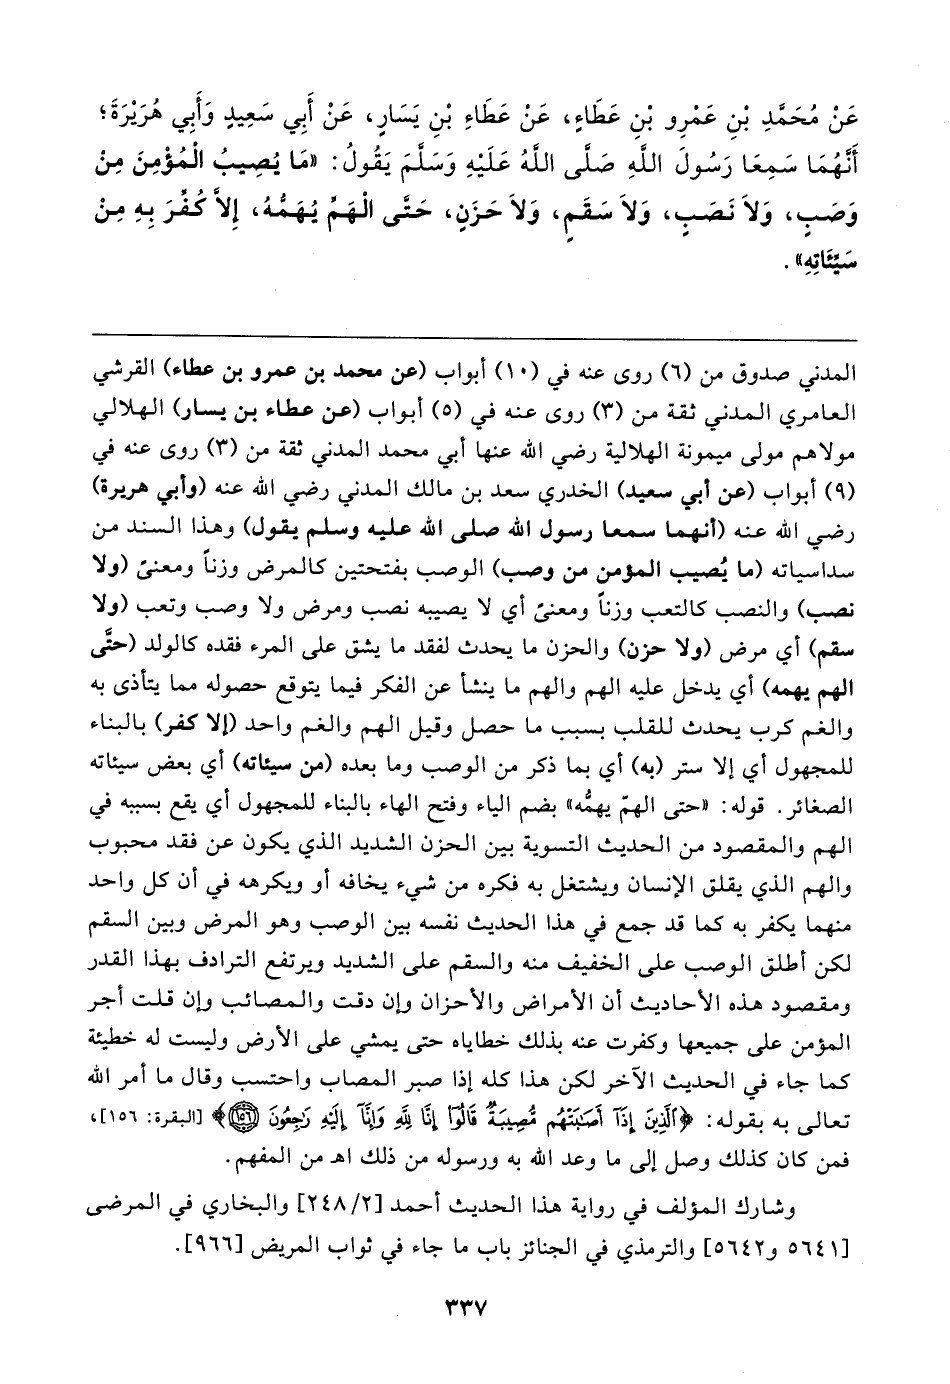 عَنْ مُحَمَّدِ بْنِ عَمْرِو بْنِ عَطَاءٍ، عَنْ عَطَاءِ بْنِ يَسَارٍ، عَنْ أَبِي سَعِيدٍ وَأَبِي هُرَيْرَةَ؛
أَنَّهُمَا سَمِعَا رَسُولَ اللَّهِ صَلَّى اللَّهُ عَلَيْهِ وَسَلَّمَ يَقُولُ: «مَا يُصِيبُ الْمُؤْمِنَ مِنْ
وَصَبٍ، وَلاَ نَصَبٍ، وَلاَ سَقَمٍ، وَلاَ حَزَنٍ، حَتَّى الْهَمِّ يُهَمُّهُ، إِلاَّ كُفِّرَ بِهِ مِنْ
سَيِّئَاتِهِ».
المدني صدوق من (٦) روى عنه في (١٠) أبواب (عن محمد بن عمرو بن عطاء) القرشي
العامري المدني ثقة من (٣) روى عنه في (٥) أبواب (عن عطاء بن يسار) الهلالي
مولاهم مولى ميمونة الهلالية رضي الله عنها أبي محمد المدني ثقة من (٣) روى عنه في
(٩) أبواب (عن أبي سعيد) الخدري سعد بن مالك المدني رضي الله عنه (وأبي هريرة)
رضي الله عنه (أنهما سمعا رسول الله صلى الله عليه وسلم يقول) وهذا السند من
سداسياته (ما يُصيب المؤمن من وصب) الوصب بفتحتين كالمرض وزناً ومعنىً (ولا
نصب) والنصب كالتعب وزناً ومعنىً أي لا يصيبه نصب ومرض ولا وصب وتعب (ولا
سقم) أي مرض (ولا حزن) والحزن ما يحدث لفقد ما يشق على المرء فقده كالولد (حتَّى
الهم يهمه) أي يدخل عليه الهم والهم ما ينشأ عن الفكر فيما يتوقع حصوله مما يتأذى به
والغم كرب يحدث للقلب بسبب ما حصل وقيل الهم والغم واحد (إلا كفر) بالبناء
للمجهول أي إلا ستر (به) أي بما ذكر من الوصب وما بعده (من سيئاته) أي بعض سيئاته
الصغائر. قوله: «حتى الهمّ يهمُّه» بضم الياء وفتح الهاء بالبناء للمجهول أي يقع بسببه في
الهم والمقصود من الحديث التسوية بين الحزن الشديد الذي يكون عن فقد محبوب
والهم الذي يقلق الإنسان ويشتغل به فكره من شيء يخافه أو ويكرهه في أن كل واحد
منهما يكفر به كما قد جمع في هذا الحديث نفسه بين الوصب وهو المرض وبين السقم
لكن أطلق الوصب على الخفيف منه والسقم على الشديد ويرتفع الترادف بهذا القدر
ومقصود هذه الأحاديث أن الأمراض والأحزان وإن دقت والمصائب وإن قلت أجر
المؤمن على جميعها وكفرت عنه بذلك خطاياه حتى يمشي على الأرض وليست له خطيئة
كما جاء في الحديث الآخر لكن هذا كله إذا صبر المصاب واحتسب وقال ما أمر الله
تعالى به بقوله: ﴿الَّذِينَ إِذَا أَصَابَتْهُم مُّصِيبَةٌ قَالُوا إِنَّا لِلَّهِ وَإِنَّا إِلَيْهِ رَاجِعُونَ ﴿١٥٦﴾﴾ [البقرة: ١٥٦]،
فمن كان كذلك وصل إلى ما وعد الله به ورسوله من ذلك اهـ من المفهم.
وشارك المؤلف في رواية هذا الحديث أحمد [٢/ ٢٤٨] والبخاري في المرضى
[٥٦٤١ و٥٦٤٢] والترمذي في الجنائز باب ما جاء في ثواب المريض [٩٦٦].
٣٣٧